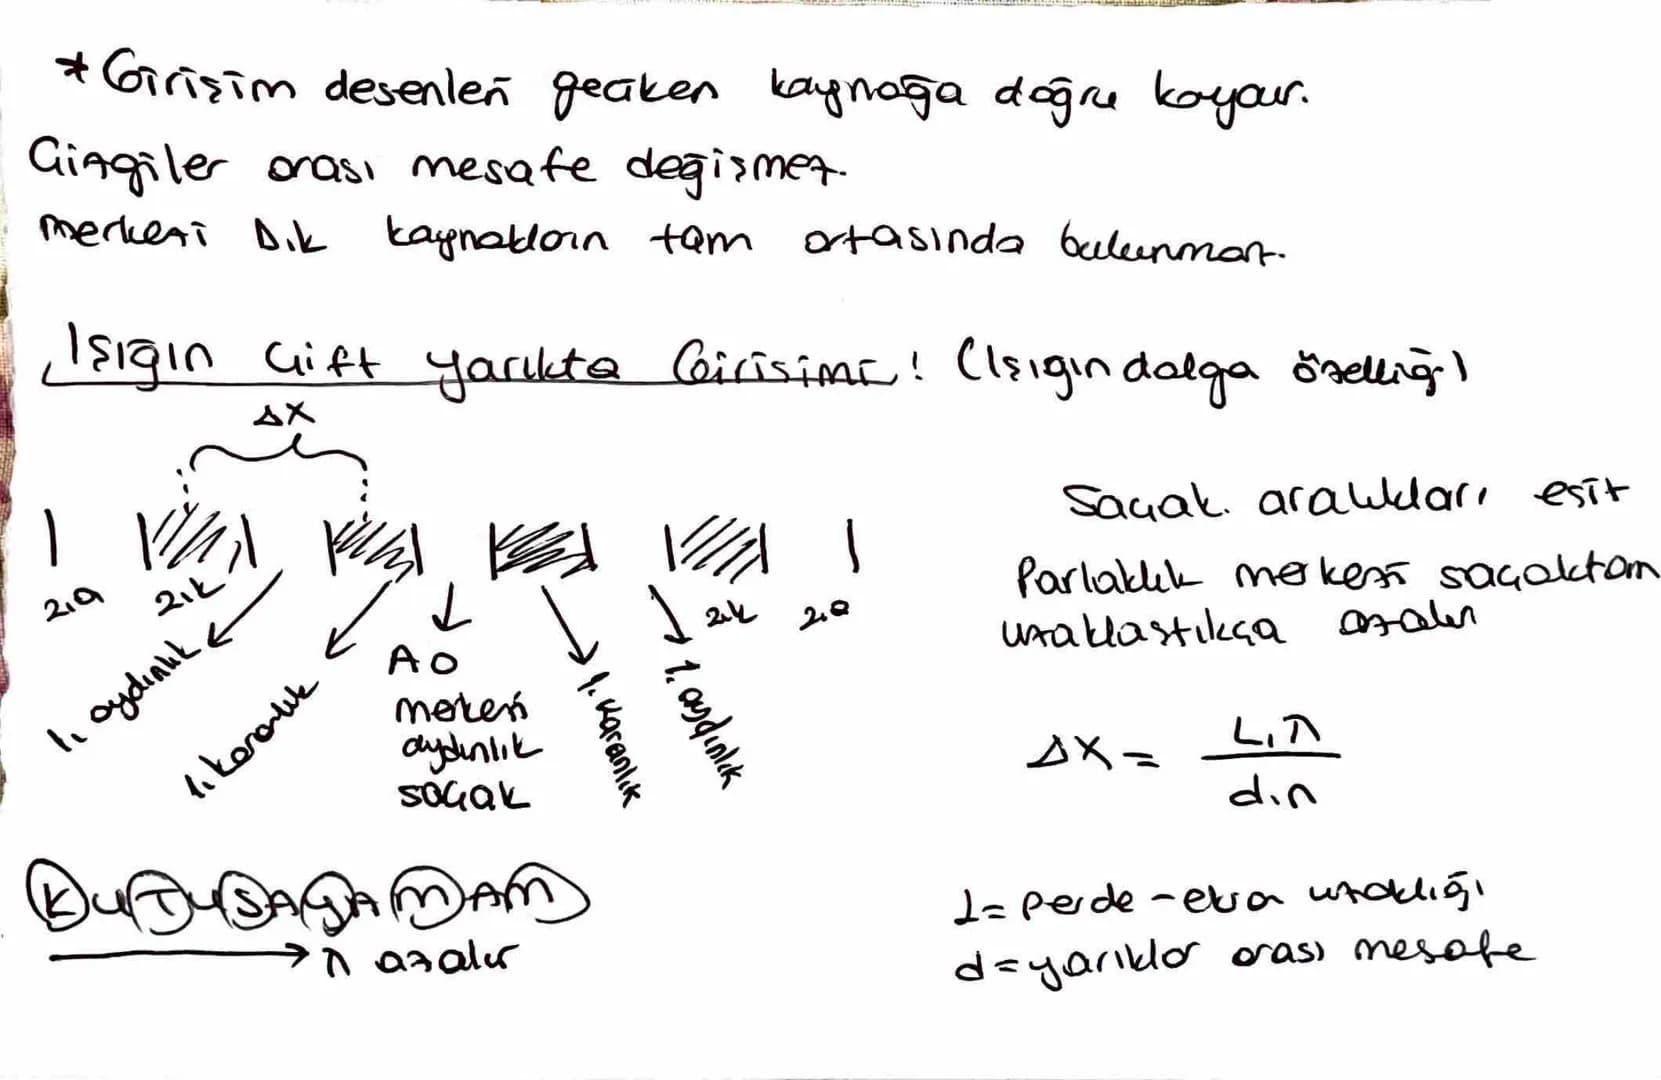 * Girişim desenleri geciken kaynağa doğru kayar.
Çizgiler arası mesafe değişmez.
merkezi D.Ç kaynakların tam ortasında bulunmaz.
Işığın Çift yarıkta Girişimi! (Işığın dalga özelliği)
ΔX
2.A 2.K 2.K 2.A
1. aydınlık
1. karanlık
A0
merkezi
aydınlık
saçak
1. karanlık
1. aydınlık
Saçak aralıkları eşit
Parlaklık merkezi saçaktan
uzaklaştıkça azalır
ΔX = L.λ / d.n
L = perde - ekran uzaklığı
d = yarıklar arası mesafe
KUTUSAYAMAM
→ λ azalır